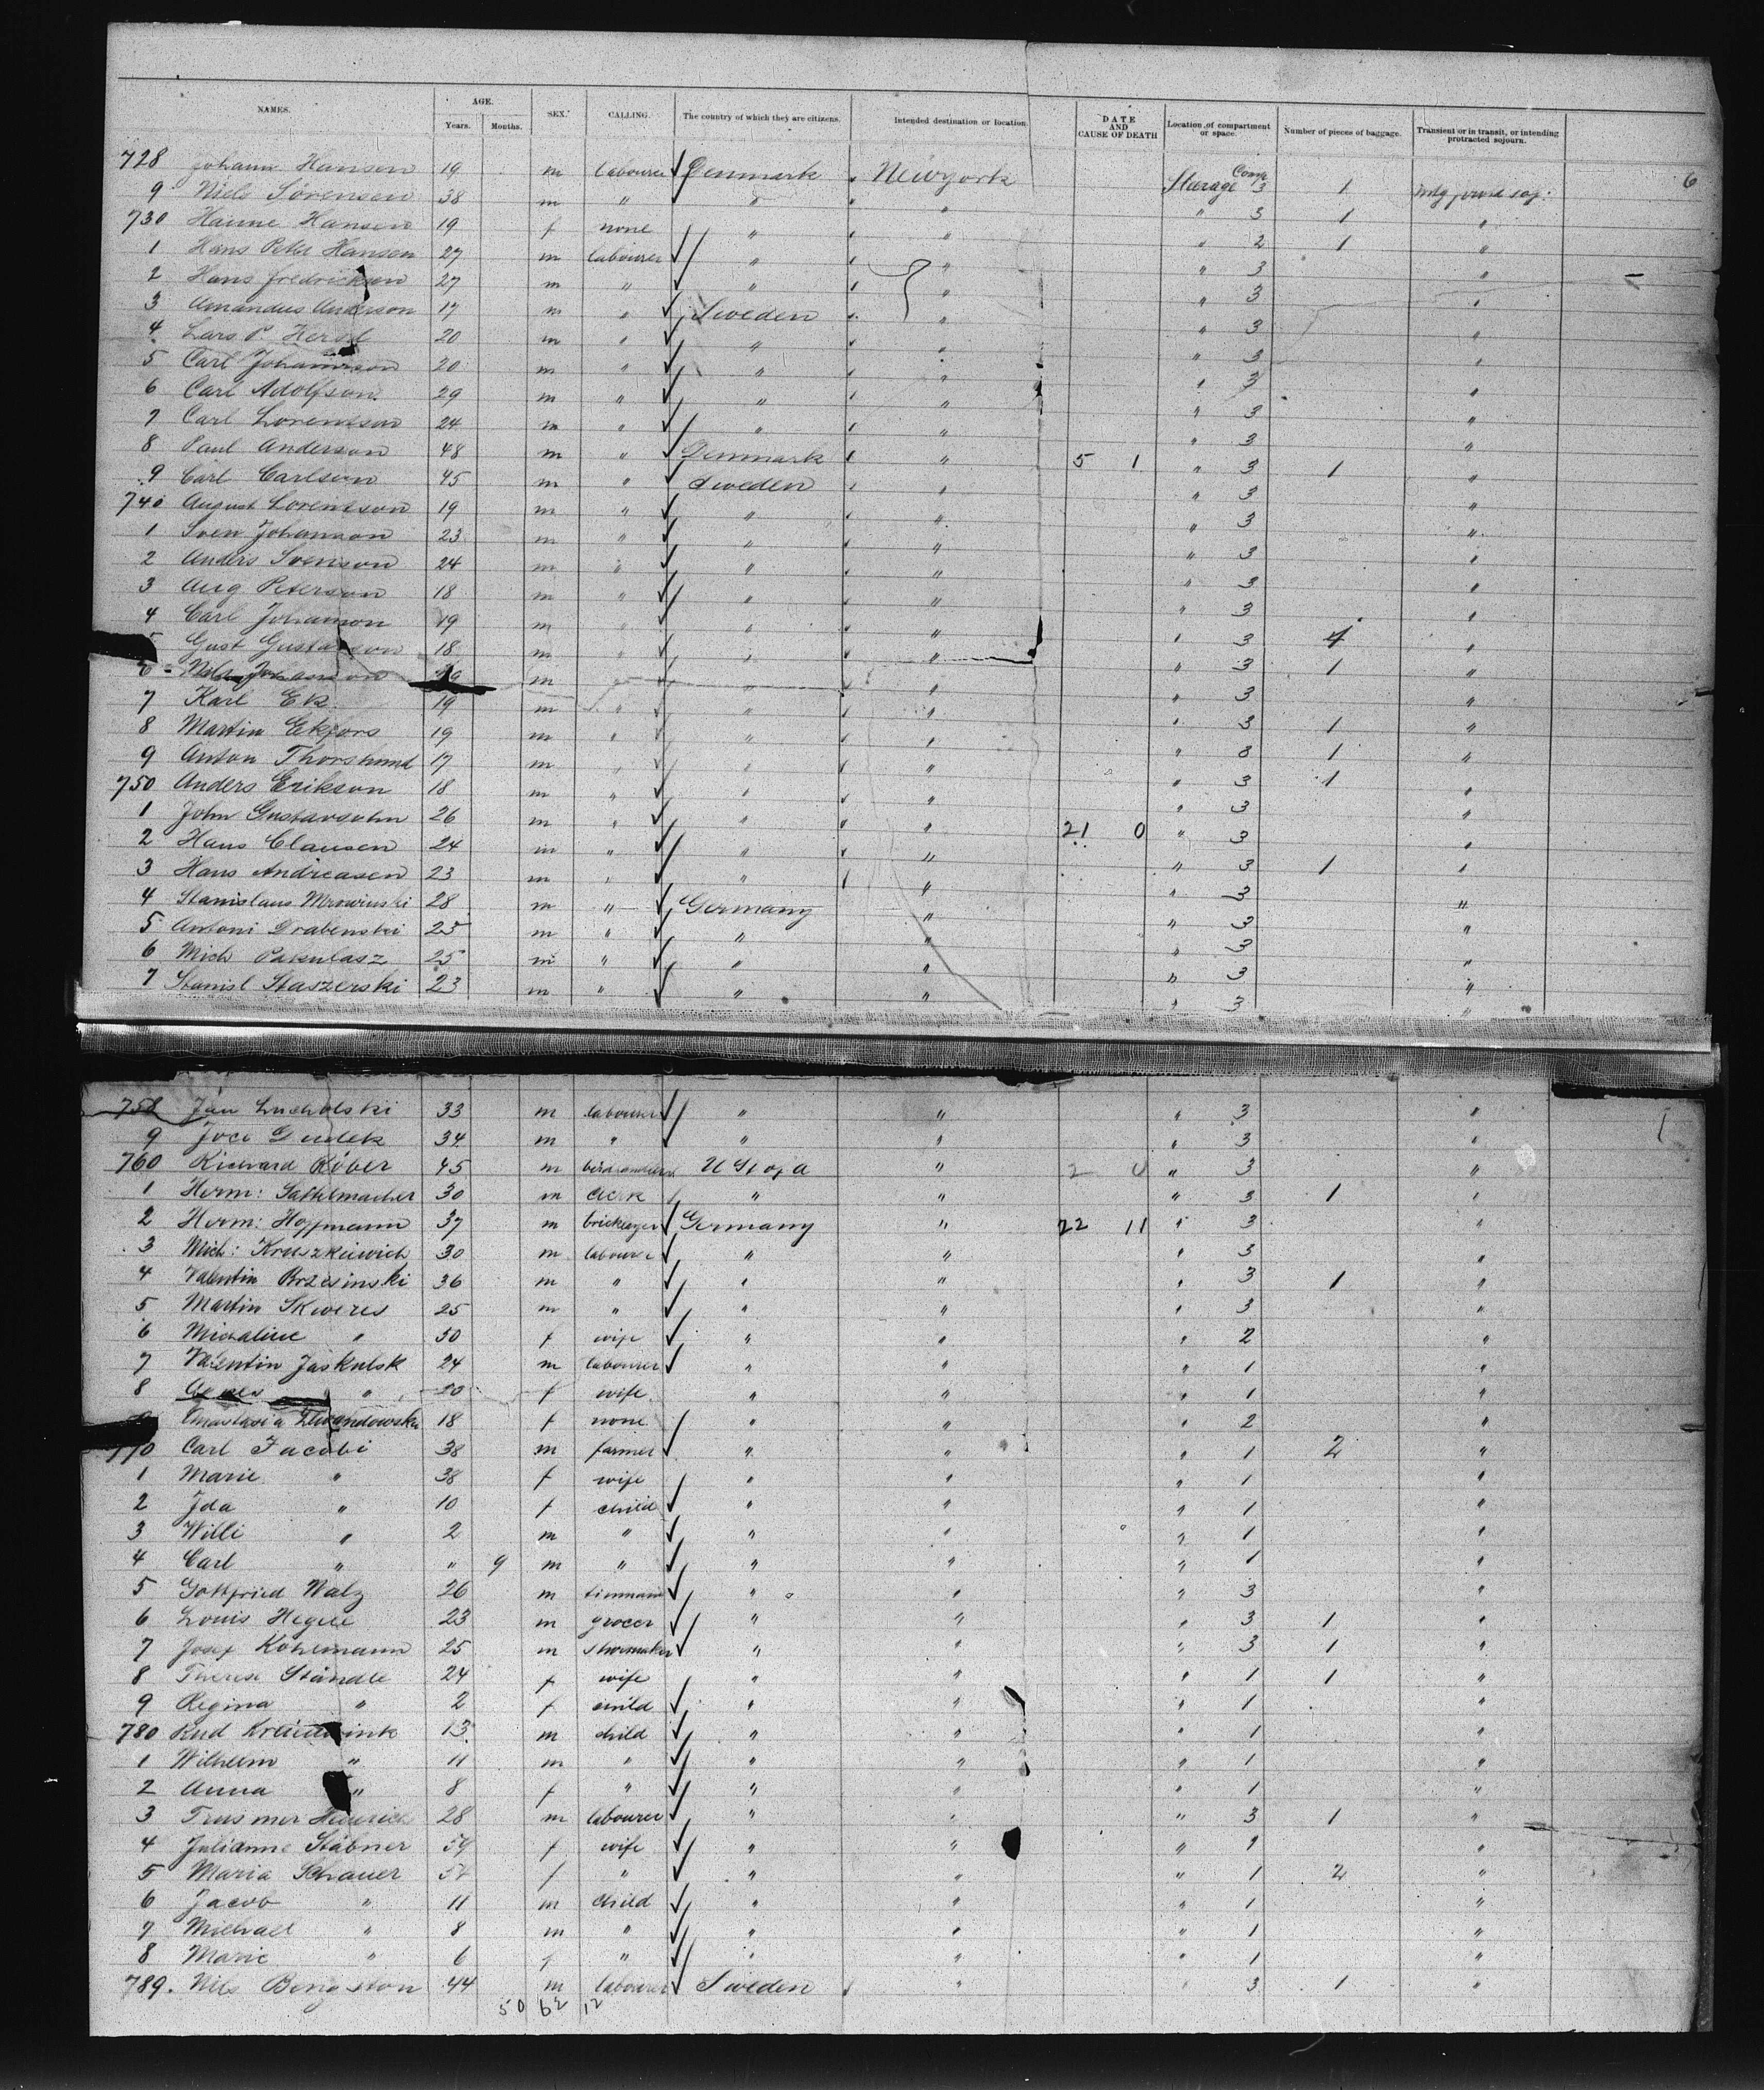 NAMES. AGE. Years. Months. SEX. CALLING. The country of which they are citizens. Intended destination or location. DATE AND CAUSE OF DEATH Location of compartment or space. Number of pieces of baggage. Transient or in transit, or intending protracted sojourn.
728 Johann Hansen 19 m labourer Denmark Newyork Steerage Comp 3 1 6
9 Niels Sörensen 38 m " " " " 3 1 "
730 Hanne Hansen 19 f none " " " 2 1 "
1 Hans Peter Hansen 27 m labourer " " " 3 "
2 Hans Fredrickson 27 m " " " " 3 "
3 Amandus Anderson 17 m " Sweden " " 3 "
4 Lars P 20 m " " " " 3 "
5 Carl Johannson 20 m " " " " 3 "
6 Carl Adolfson 29 m " " " " 3 "
7 Carl Lorentson 24 m " " " " 3 "
8 Paul Anderson 48 m " Denmark " 5 1 " 3 1 "
9 Carl Carlson 45 m " Sweden " " 3 "
740 August Lorentson 19 m " " " " 3 "
1 Sven Johanson 23 m " " " " 3 "
2 Anders Svenson 24 m " " " " 3 "
3 Aug Peterson 18 m " " " " 3 "
4 Carl Johanson 19 m " " " " 3 4 "
5 Gust Gustafson 18 m " " " " 3 1 "
6 Nils Johanson m " " " " 3 "
7 Karl Ek 19 m " " " " 3 1 "
8 Martin Ekfors 19 m " " " " 8 1 "
9 Anton Thorshund 17 m " " " " 3 1 "
750 Anders Erikson 18 m " " " " 3 "
1 John Gustavsohn 26 m " " " 21 0 " 3 "
2 Hans Clausen 24 m " " " " 3 1 "
3 Hans Andreasen 23 m " " " " 3 "
4 Stanislaus Mrowinski 28 m " Germany " " 3 "
5 Antoni Drabenski 25 m " " " " 3 "
6 Mich Pakulasz 25 m " " " " 3 "
7 Stanisl Staszerski 23 m " " " " 3 "
758 Jan Lucholski 33 m labourer " " " 3 "
9 34 m " " " " 3 "
760 Richard Röber 45 m U St of a " 2 0 " 3 "
1 Herm: Sattelmacher 30 m clerk " " " 3 1 "
2 Herm: Hoffmann 37 m bricklayer Germany " 22 11 " 3 "
3 Mich: Kruszkiewich 30 m labourer " " " 3 "
4 Valentin Brzesinski 36 m " " " " 3 1 "
5 Martin Skweres 25 m " " " " 3 "
6 Michaline " 30 f wife " " " 2 "
7 Valentin Jaskulsk 24 m labourer " " " 1 "
8 Agnes " 20 f wife " " " 1 "
Anastasia Lewandowska 18 f none " " " 2 "
770 Carl Jacobi 38 m farmer " " " 1 2 "
1 Marie " 38 f wife " " " 1 "
2 Ida " 10 f child " " " 1 "
3 Willi " 2 m " " " " 1 "
4 Carl " " 9 m " " " " 1 "
5 Gottfried Walz 26 m " " " 3 "
6 Louis Hegele 23 m grocer " " " 3 1 "
7 Josef Kohlmann 25 m shoemaker " " " 3 1 "
8 Therese Ständle 24 f wife " " " 1 1 "
9 Regina " 2 f child " " " 1 "
780 Rud 13 m child " " " 1 "
1 Wilhelm " 11 m " " " " 1 "
2 Anna " 8 f " " " " 1 "
3 Heinrich 28 m labourer " " " 3 1 "
4 Julianne Stäbner 59 f wife " " " 1 "
5 Maria Schauer f " " " " 1 2 "
6 Jacob " 11 m child " " " 1 "
7 Michael " 8 m " " " " 1 "
8 Marie " 6 f " " " " 1 "
789. Nils Bengston 44 m labourer Sweden " " 3 1 "
50 62 12